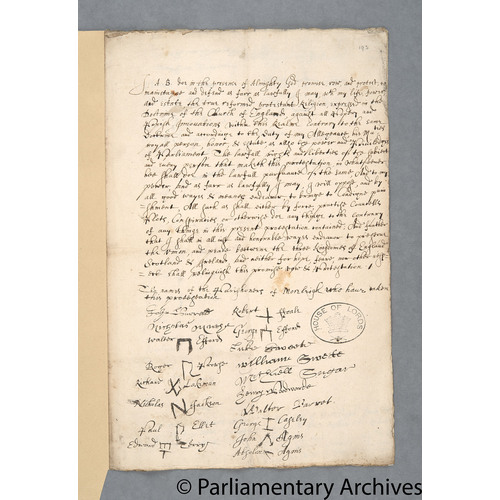 192
I A. B. doe in the presence of Almighty God promise vow and protest to
maintaine and defend as farr as lawfully I may, with my life power
and estate the true reformed protestant Religion expressed in the
Doctrine of the Church of England against all Popery and
Popish Innovations within this Realme Contrary to the same
Doctrine and according to the duty of my Allegeance his Maties
royall person honor & estate as allso the power and Priviledges
of Parliament The lawfull rights and liberties of the subjects
and every person that maketh this protestation in whatsoever
hee shall doe in the lawfull pursuance of the same And to my
power and as farr as lawfully I may, I will oppose and by
all good wayes & meanes endeavor to bringe to condigne pun
=ishment All such as shall either by force, practice Councells
Plots, Conspiracies or otherwise doe any thinge to the contrary
of any thinge in this present protestation contained And further
that I shall in all just and honorable wayes endeavor to preserve
the Union and peace betweene the three Kingdomes of England
Scotland & Ireland And neither for hope, feare nor other
shall relinquish this promise vow & Protestation
The names of the Parishioners of Morleigh who have taken
this protestation
John
Robert Peale
Nicholas
George Efford
Walter Efford
Luke Sweete
Roger
William Swete
Richard Lakeman
Sugar
Nicholas Jackson
Henry
Paul Ellet
Walter
Edward
George
John Ayms
Absolon Ayms
HOUSE OF LORDS
© Parliamentary Archives